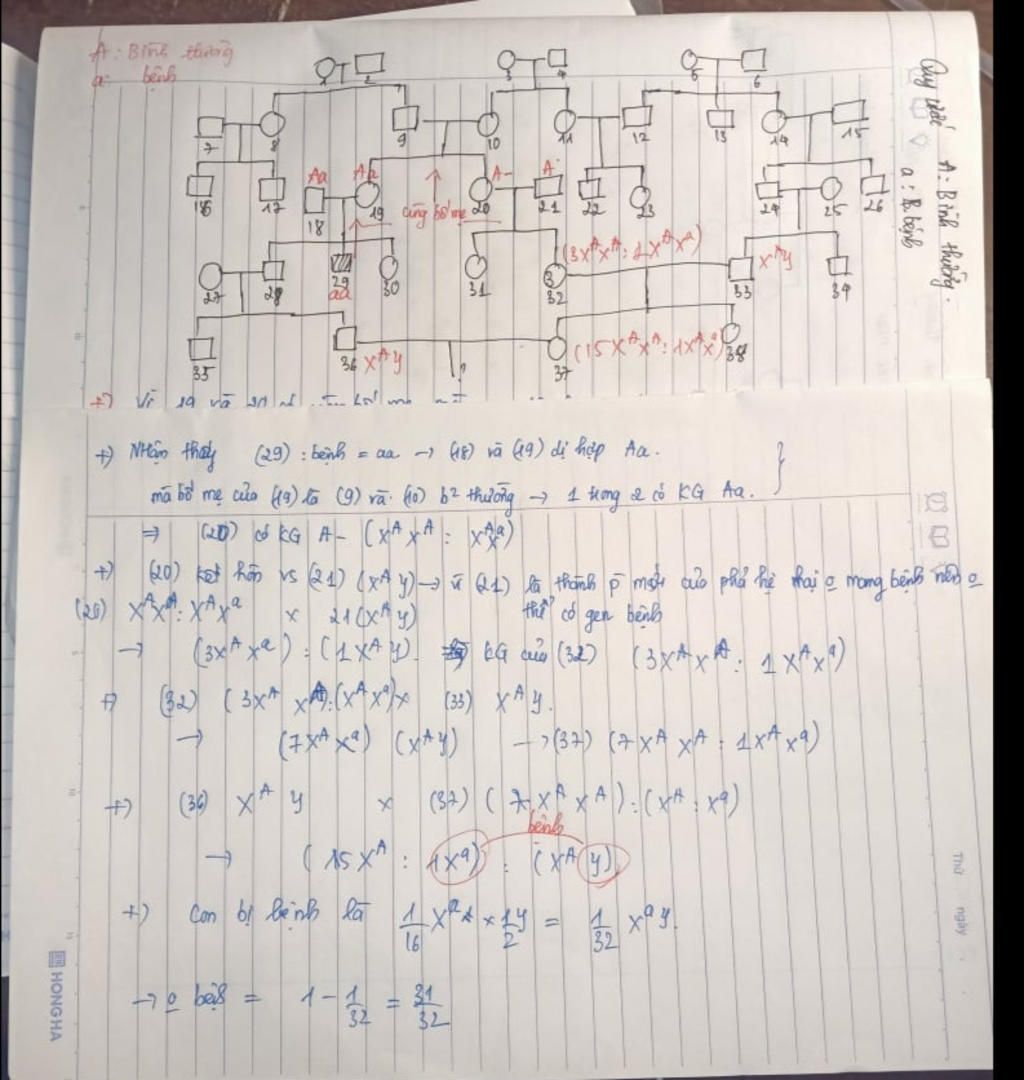 A : Bình thường
a: bệnh
Quy ước A : Bình thường.
a : bệnh
1 2 3 4 5 6
7 8 9 10 11 12 13 14 15
Aa Aa A- A-
16 17 18 19 cùng bố mẹ 20 21 22 23 24 25 26
(3XᴬXᴬ : 1XᴬXᵃ) XᴬY
27 28 29 30 31 3 32 33 34
aa
35 36 XᴬY ? 37 (15XᴬXᴬ : 1XᴬXᵃ) 38
+) Vì 19 và 20
+) Nhận thấy (29) : bệnh = aa → (18) và (19) dị hợp Aa.
mà bố mẹ của (19) là (9) và (10) b² thường → 1 trong 2 có KG Aa.
⇒ (20) có KG A- (XᴬXᴬ : XᴬXᵃ)
+) (20) kết hôn vs (21) (XᴬY) → vì (21) là thành p mới của phả hệ mang bệnh nên
thể có gen bệnh
(20) XᴬXᴬ : XᴬXᵃ x 21(XᴬY)
→ (3Xᴬ Xᵃ) : (1XᴬY). KG của (32) (3XᴬXᴬ : 1XᴬXᵃ)
+) (32) (3Xᴬ Xᴬ):(XᴬXᵃ) x (33) XᴬY.
→ (7XᴬXᵃ) (XᴬY) → (37) (7XᴬXᴬ : 1XᴬXᵃ)
+) (36) XᴬY x (37) (7XᴬXᴬ) : (Xᴬ : Xᵃ)
bệnh
→ (15Xᴬ : 1Xᵃ) : (XᴬY)
+) Con bị bệnh là 1/16 Xᵃ x 1/2 Y = 1/32 XᵃY.
→ o bệnh = 1 - 1/32 = 31/32
HONGHA
Thứ ngày